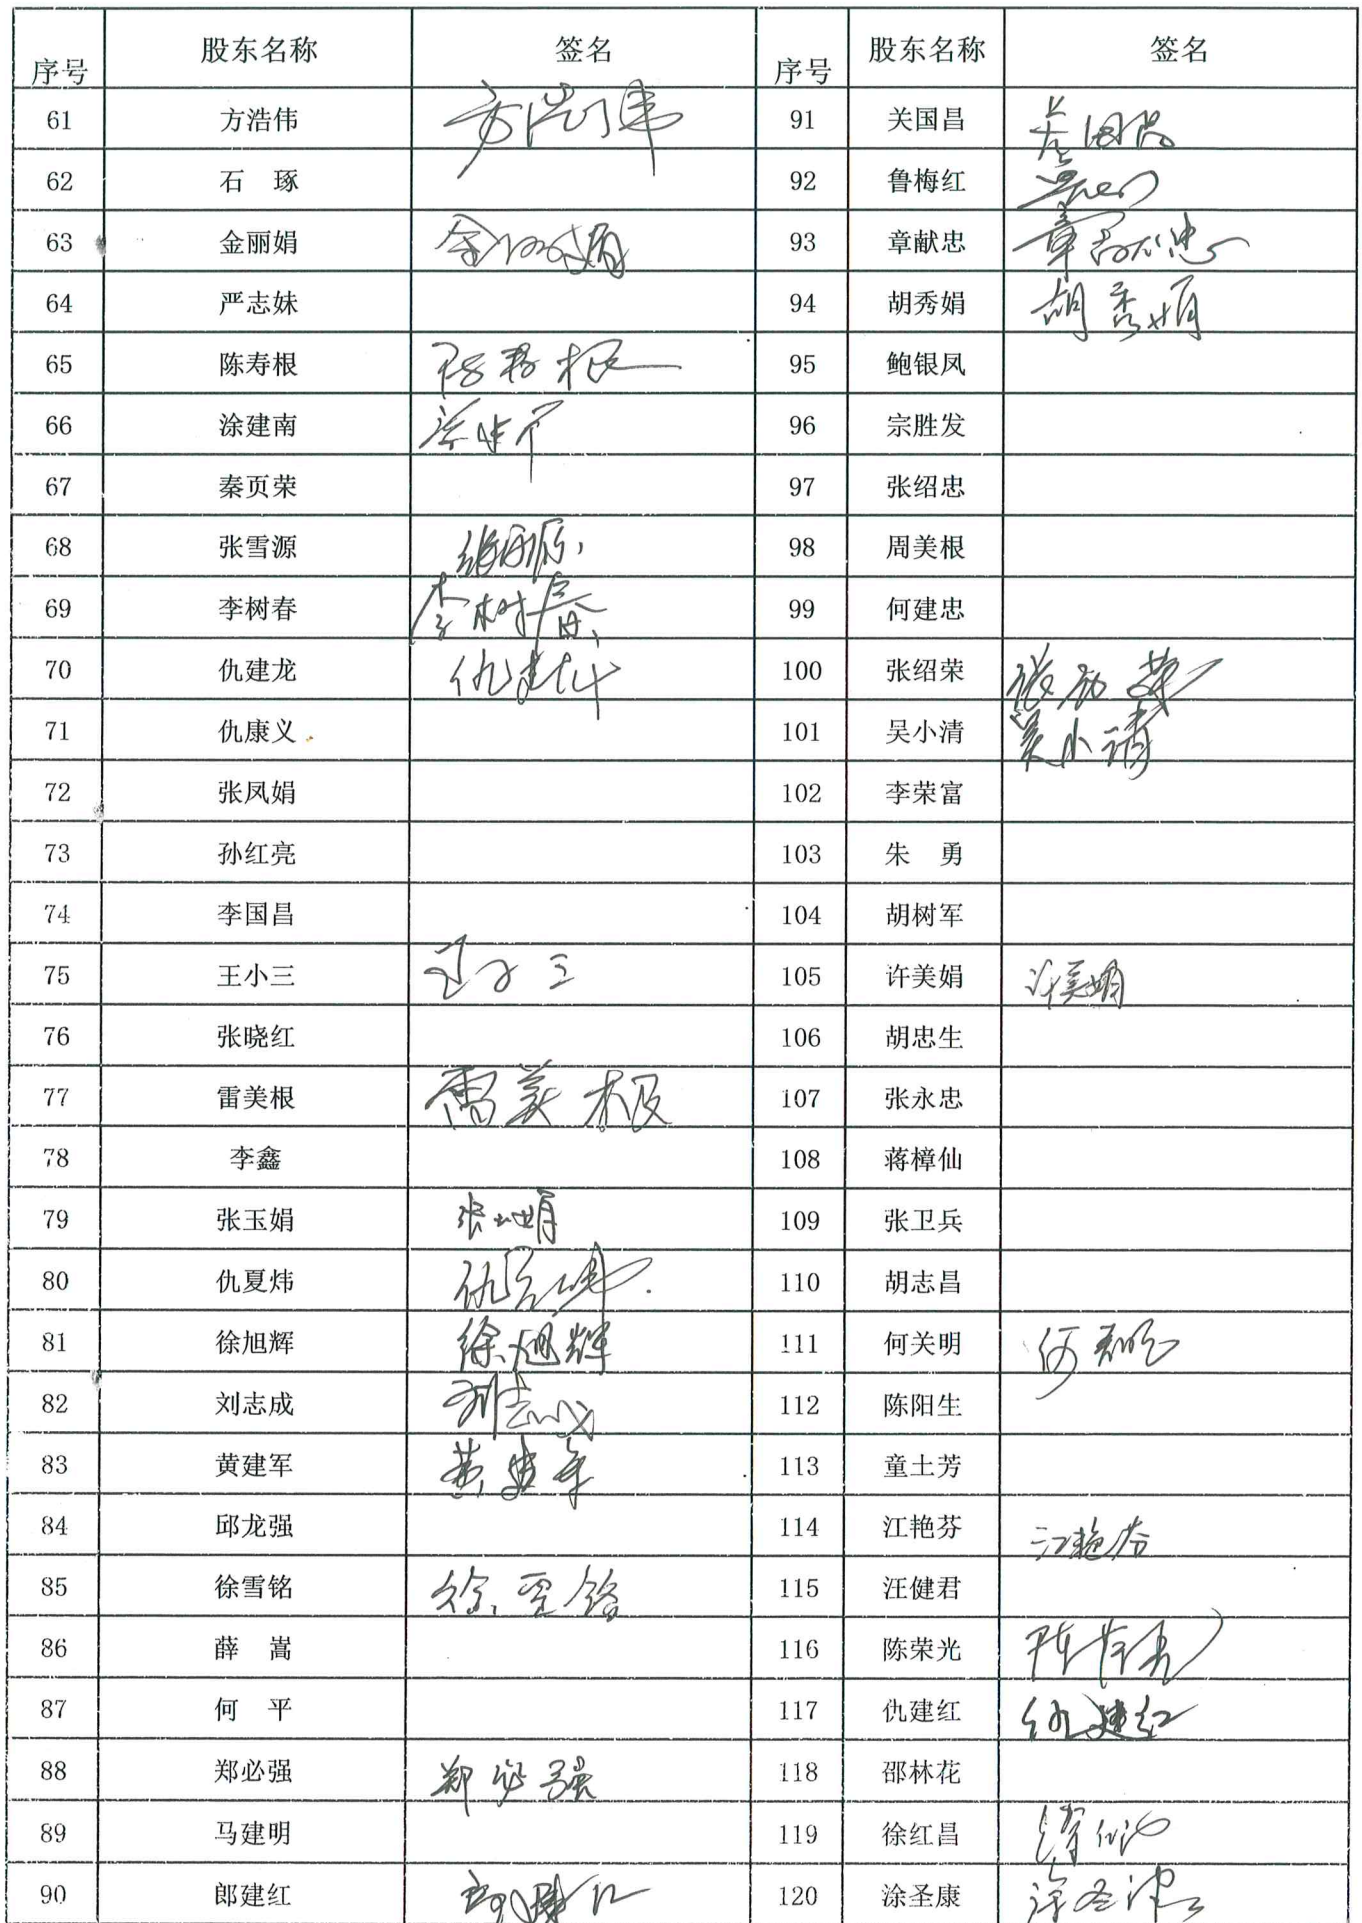 序号 股东名称 签名 序号 股东名称 签名
61 方浩伟 方浩伟 91 关国昌 关国昌
62 石 琢 92 鲁梅红
63 金丽娟 金丽娟 93 章献忠 章献忠
64 严志妹 94 胡秀娟 胡秀娟
65 陈寿根 陈寿根 95 鲍银凤
66 涂建南 96 宗胜发
67 秦页荣 97 张绍忠
68 张雪源 张雪源 98 周美根
69 李树春 李树春 99 何建忠
70 仇建龙 仇建龙 100 张绍荣 张绍荣
71 仇康义 101 吴小清 吴小清
72 张凤娟 102 李荣富
73 孙红亮 103 朱 勇
74 李国昌 104 胡树军
75 王小三 王小三 105 许美娟 许美娟
76 张晓红 106 胡忠生
77 雷美根 雷美根 107 张永忠
78 李鑫 108 蒋樟仙
79 张玉娟 张玉娟 109 张卫兵
80 仇夏炜 仇夏炜 110 胡志昌
81 徐旭辉 徐旭辉 111 何关明 何关明
82 刘志成 刘志成 112 陈阳生
83 黄建军 黄建军 113 童土芳
84 邱龙强 114 江艳芬 江艳芬
85 徐雪铭 徐雪铭 115 汪健君
86 薛 嵩 116 陈荣光 陈荣光
87 何 平 117 仇建红 仇建红
88 郑必强 郑必强 118 邵林花
89 马建明 119 徐红昌
90 郎建红 郎建红 120 涂圣康 涂圣康